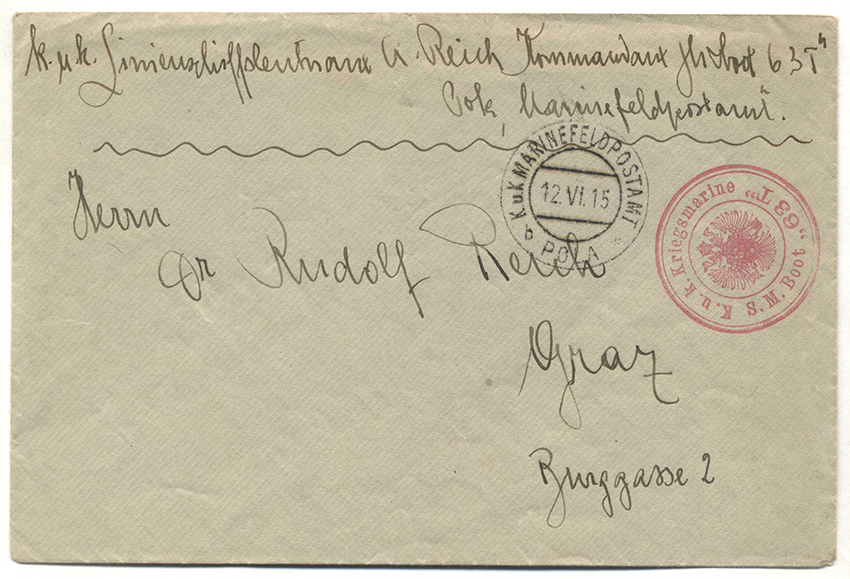 k. u. k. Linienschiffsleutnant A. Reich Kommandant 63T"
Pola, Marinefeldpostamt.
K.u.K. MARINEFELDPOSTAMT
12.VI.15
b POLA *
K.u.k. Kriegsmarine
S. M. Boot „63 T“
Herrn
Dr Rudolf Reich
Graz
Burggasse 2